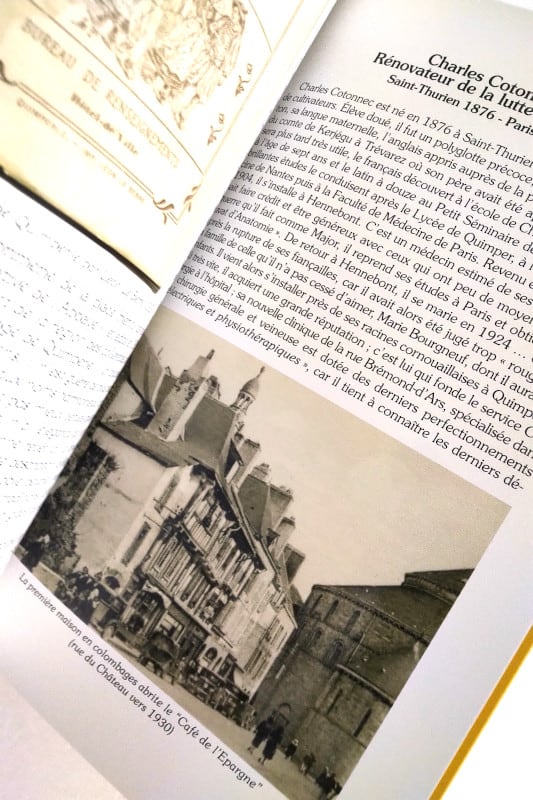 BUREAU DE RENSEIGNEMENTS
Hôtel de Ville
Charles Coton
Rénovateur de la lutte
Saint-Thurien 1876 - Paris
Charles Cotonnec est né en 1876 à Saint-Thurien
de cultivateurs. Élève doué, il fut un polyglotte précoce
on, sa langue maternelle, l'anglais appris auprès de la p
du comte de Kerjégu à Trévarez où son père avait été a
sera plus tard très utile, le français découvert à l'école de Ch
à l'âge de sept ans et le latin à douze au Petit Séminaire de
rillantes études le conduisent après le Lycée de Quimper, à l'
de Nantes puis à la Faculté de Médecine de Paris. Revenu e
1904, il s'installe à Hennebont. C'est un médecin estimé de ses
ait faire crédit et être généreux avec ceux qui ont peu de moyen
uerre qu'il fait comme Major, il reprend ses études à Paris et obti
at d'Anatomie ». De retour à Hennebont, il se marie en 1924 ... 
près la rupture de ses fiançailles, car il avait alors été jugé trop « roug
famille de celle qu'il n'a pas cessé d'aimer, Marie Bourgneuf, dont il aura
nfants. Il vient alors s'installer près de ses racines cornouaillaises à Quimpe
très vite, il acquiert une grande réputation ; c'est lui qui fonde le service C
rgie à l'hôpital ; sa nouvelle clinique de la rue Brémond-d'Ars, spécialisée dan
chirurgie générale et veineuse est dotée des derniers perfectionnements
lectriques et physiothérapiques », car il tient à connaître les derniers dé-
La première maison en colombages abrite le "Café de l'Epargne"
(rue du Château vers 1930)